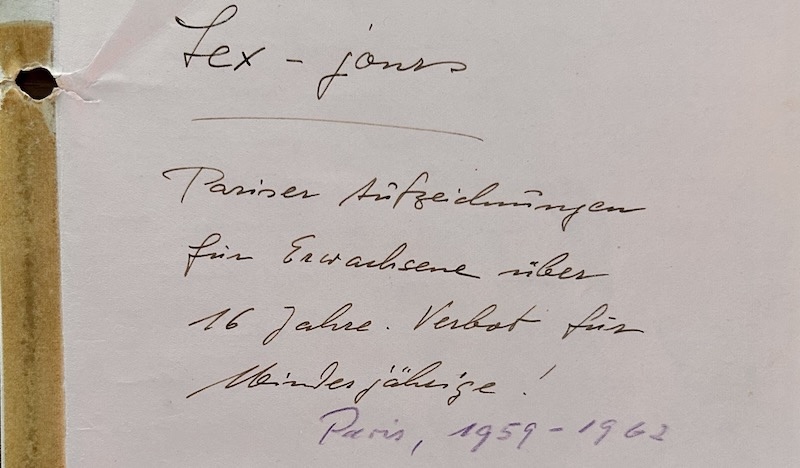 Sex - jours
Pariser Aufzeichnungen
für Erwachsene über
16 Jahre. Verbot für
Minderjährige!
Paris, 1959-1962